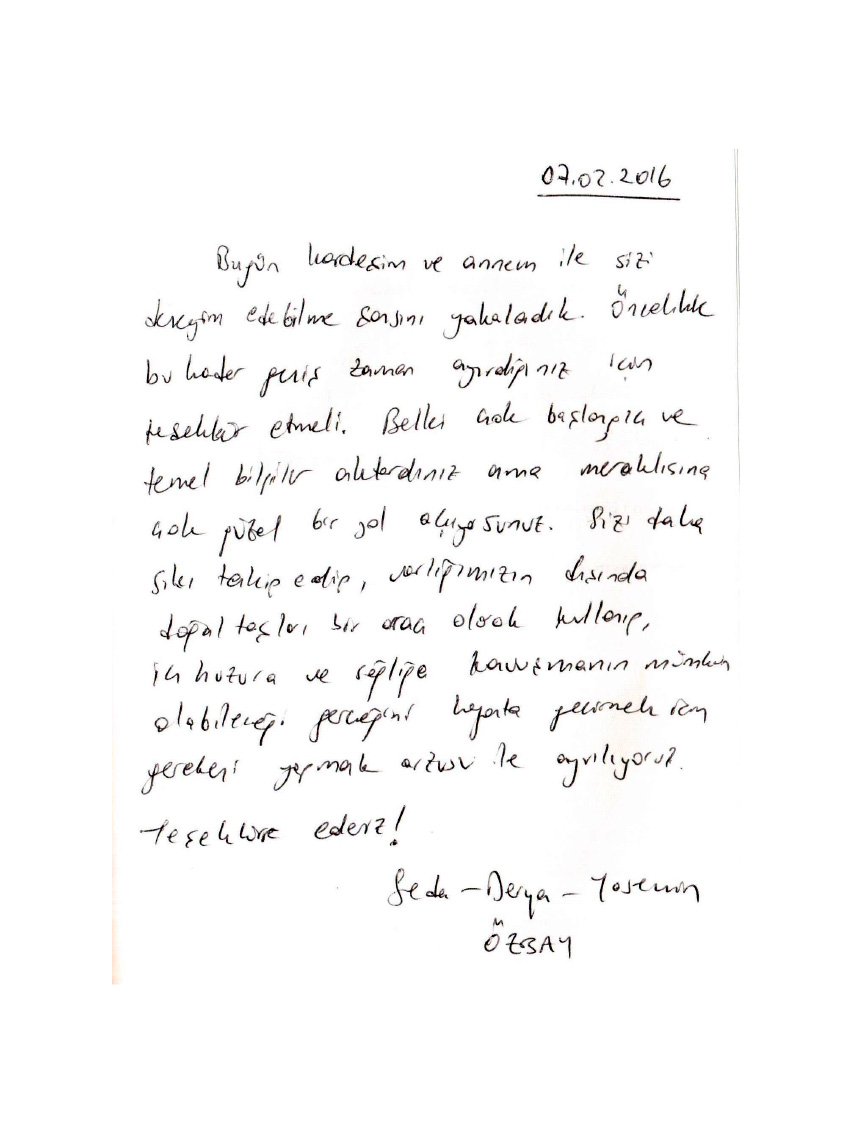 07.02.2016
Bugün kardeşim ve annem ile sizi
deneyim edebilme şansını yakaladık. Öncelikle
bu kadar geniş zaman ayırdığınız için
teşekkür etmeli. Belki çok başlangıç ve
temel bilgiler aktardınız ama meraklısına
çok güzel bir yol açıyorsunuz. Sizi daha
sıkı takip edip, varlığımızın dışında
doğal taşları bir araç olarak kullanıp,
iç huzura ve sağlığa kavuşmanın mümkün
olabileceği gerçeğini hayata geçirmek için
gerekeni yapmak arzusu ile ayrılıyoruz.
Teşekkürler ederiz!
Seda - Derya - Yasemin
ÖZBAY